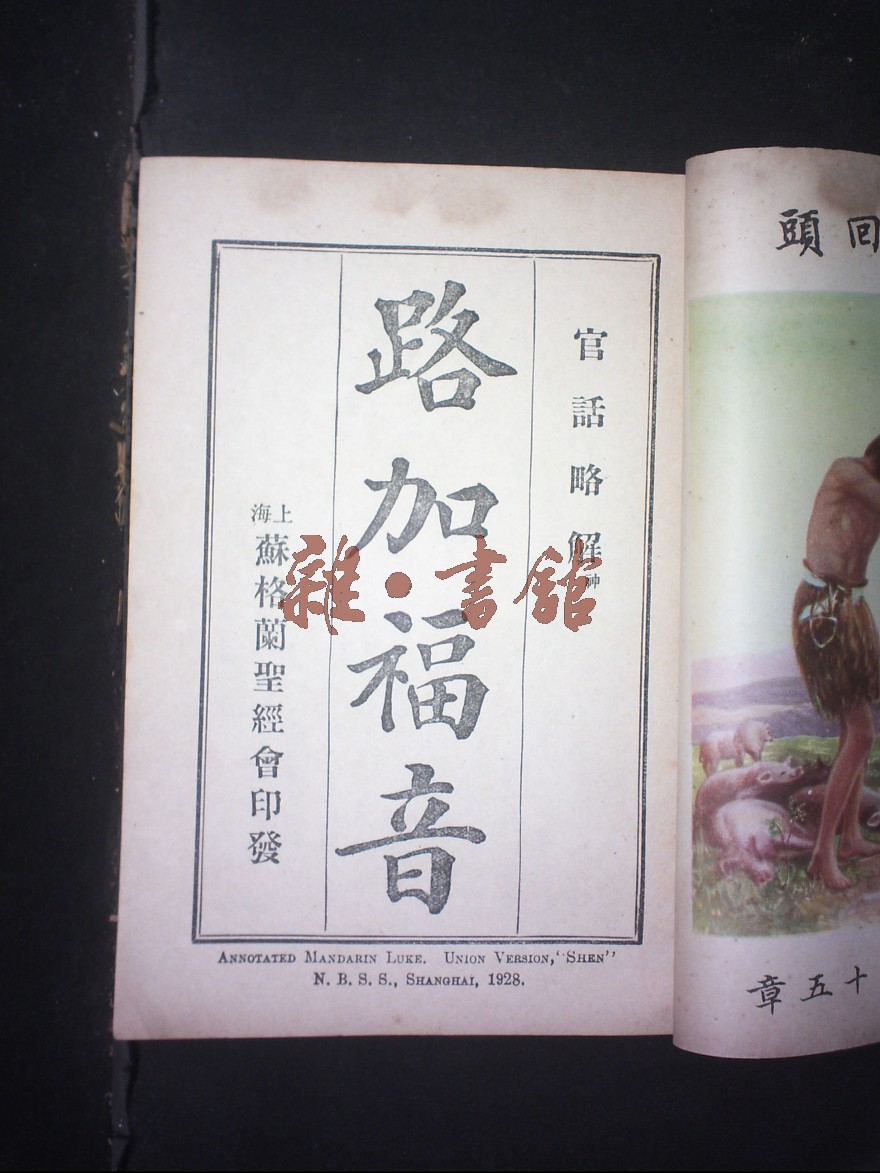 官話略解神
路加福音
上海
蘇格蘭聖經會印發
ANNOTATED MANDARIN LUKE. UNION VERSION, "SHEN"
N. B. S. S., SHANGHAI, 1928.
回頭
十五章
雜·書館